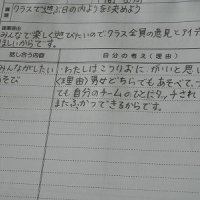 クラスで遊ぶ日の内ようを決めよう
みんなで楽しく遊びたいのでクラス全員の意見とアイデ
ほしいからです。
話し合う内容
自分の考え（理由）
みんながしたい
あそび
・わたしはこうりおに、がいいと思い
〈理由〉男女どちらでもあそべて、
ても自分のチームのひとにタッチされ
またふっかつできるからです。